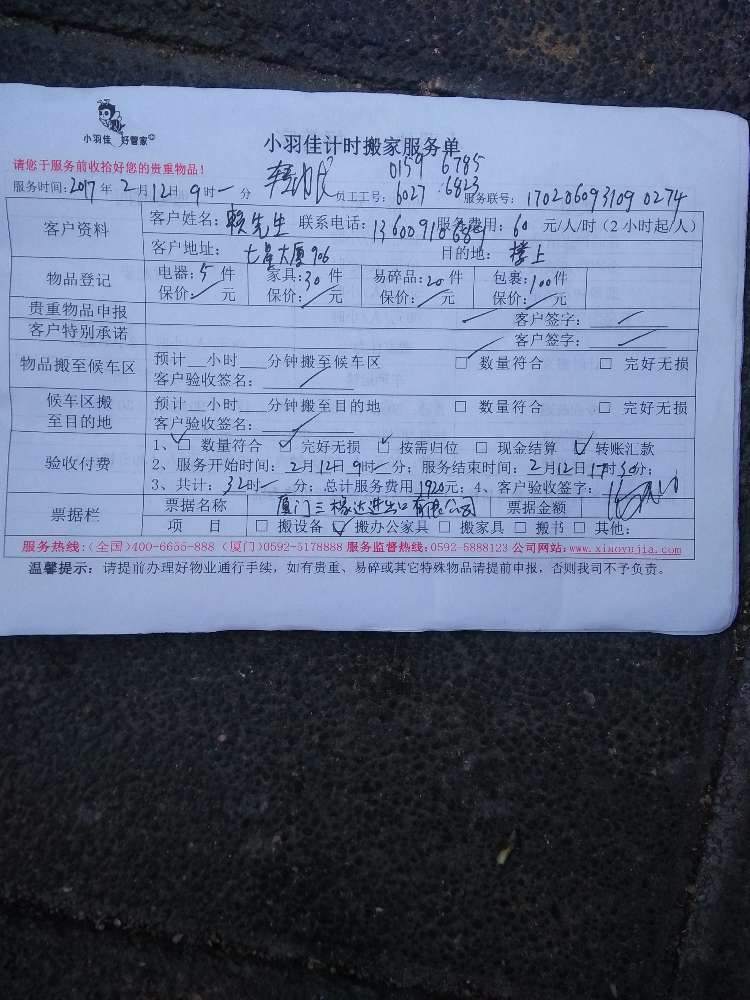 小羽佳 好管家
小羽佳计时搬家服务单
请您于服务前收拾好您的贵重物品!
0159 6785
服务时间:2017年2月12日9时一分 员工工号:6027 6823 服务联号:170206093109 0274
客户资料 客户姓名:赖先生 联系电话:13600910689 服务费用:60 元/人/时(2小时起/人)
客户地址:七星大厦906 目的地:楼上
物品登记 电器:5件 家具:30件 易碎品:20件 包裹:100件
保价: 元 保价: 元 保价: 元 保价: 元
贵重物品申报 客户签字:
客户特别承诺 客户签字:
物品搬至候车区 预计__小时__分钟搬至候车区 □ 数量符合 □ 完好无损
客户验收签名:
候车区搬至目的地 预计__小时__分钟搬至目的地 □ 数量符合 □ 完好无损
客户验收签名:
验收付费 1、☑ 数量符合 ☑ 完好无损 ☑ 按需归位 □ 现金结算 ☑ 转账汇款
2、服务开始时间:2月12日9时一分;服务结束时间:2月12日17时30分;
3、共计:32时一分;总计服务费用1920元;4、客户验收签字:
票据栏 票据名称 厦门三椽达进出口有限公司 票据金额
项 目 □ 搬设备 ☑ 搬办公家具 □ 搬家具 □ 搬书 □ 其他:
服务热线:(全国)400-6655-888 (厦门)0592-5178888 服务监督热线:0592-5888123 公司网站:www.xiaoyujia.com
温馨提示:请提前办理好物业通行手续,如有贵重、易碎或其它特殊物品请提前申报,否则我司不予负责。